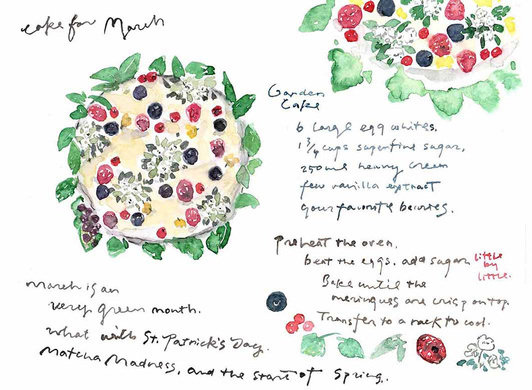 cake for March
Garden
Cake
6 large egg whites,
1 3/4 cups superfine sugar,
250ml heavy cream
few vanilla extract
your favorite berries.
Preheat the oven,
beat the eggs. add sugar little by little.
Bake until the
meringues are crisp on top.
Transfer to a rack to cool.
March is an
very green month.
what with St. Patrick's Day.
Matcha Madness, and the start of Spring.